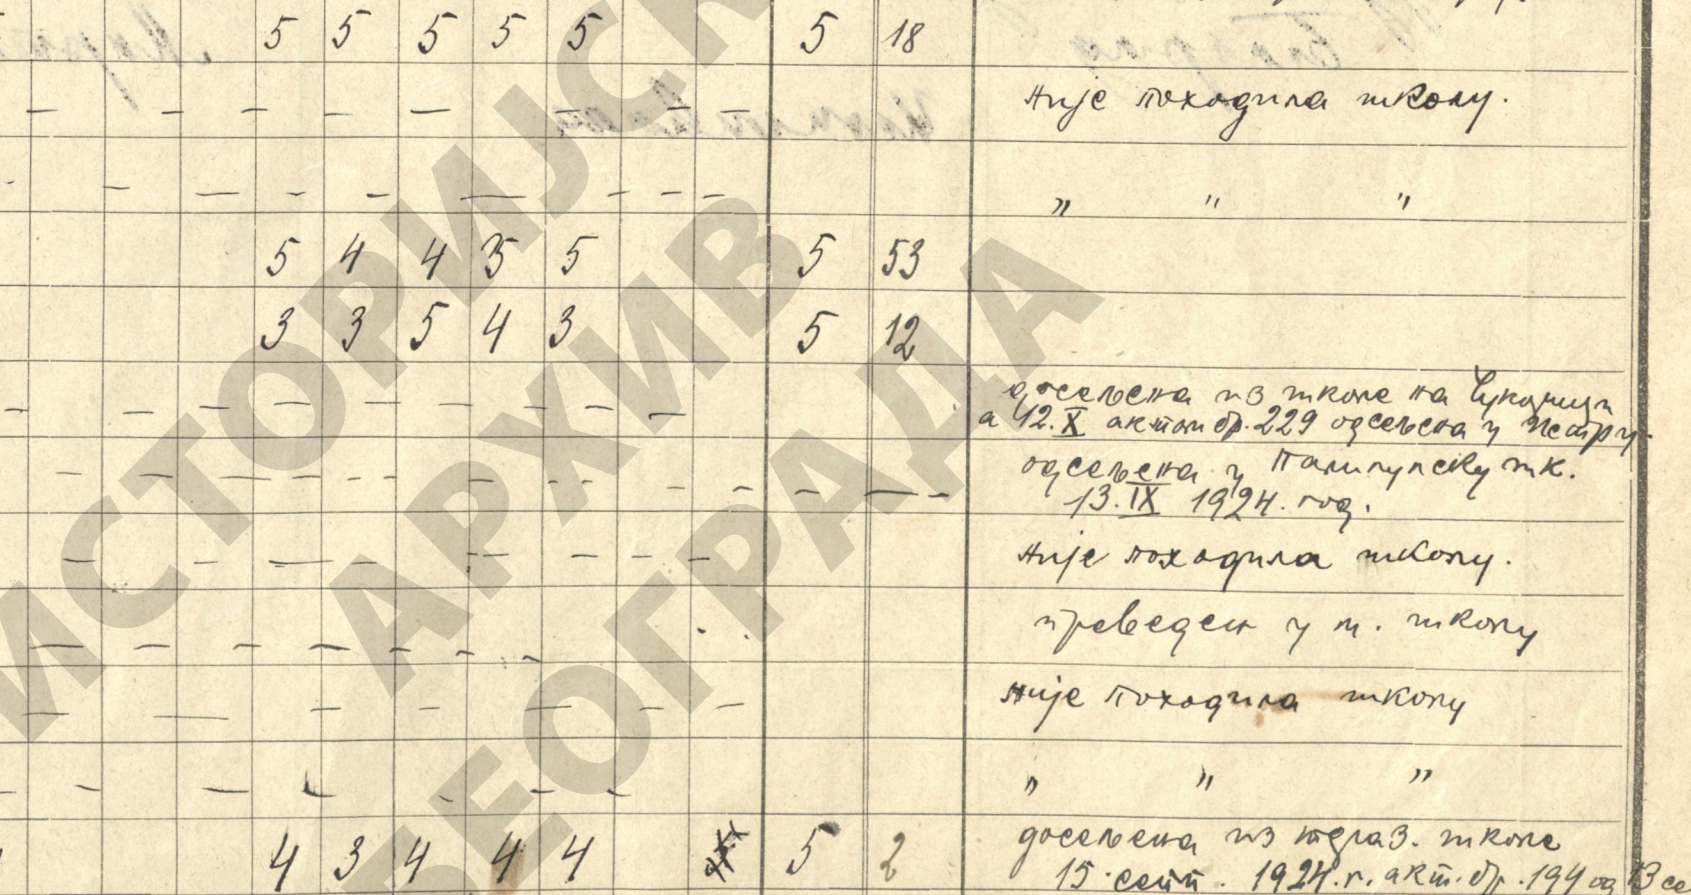 5 5 5 5 5 5 18
није походила школу.
„ " "
5 4 4 5 5 5 53
3 3 5 4 3 5 12
досељена из школе на Чукарици
а 12.X актом бр. 229 одсељена у
одсељена у Палилулску шк.
13.IX 1924. год.
није походила школу.
преведен у м. школу
није походила школу
„ " "
4 3 4 4 4 5 2
досељена из школе
15. септ. 1924. г. акт. бр. 194 од 13 се
ИСТОРИЈСК
АРХИВ
БЕОГРАДА